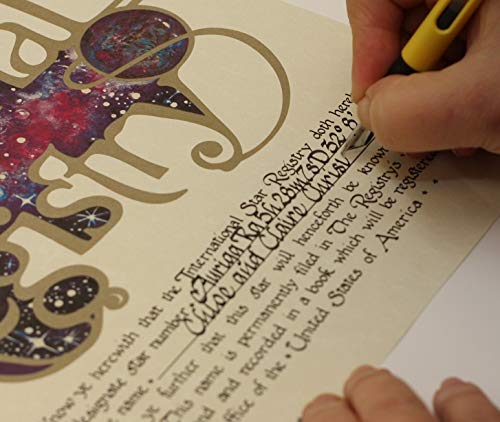 al
istry
now ye herewith that the International Star Registry doth hereb
designate star number Auriga Ra5h28m7sD32°8
name Chloe and Claire Christ
ye further that this star will henceforth be known
This name is permanently filed in The Registry's
and recorded in a book which will be registere
office of the • United States of America •